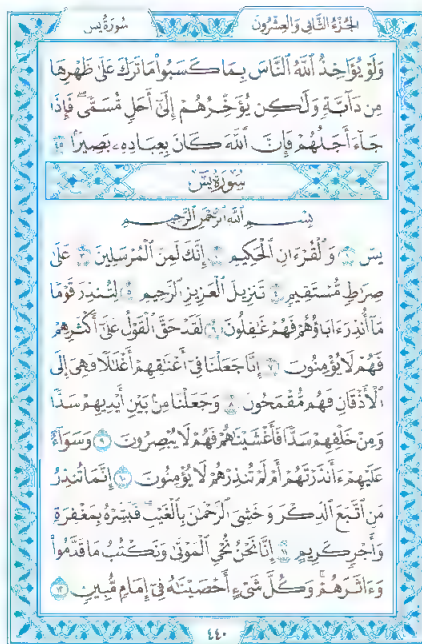 الجزء الثاني والعشرون
سورة يس
وَلَوْ يُؤَاخِذُ ٱللَّهُ ٱلنَّاسَ بِمَا كَسَبُوا۟ مَا تَرَكَ عَلَىٰ ظَهْرِهَا
مِن دَآبَّةٍ وَلَٰكِن يُؤَخِّرُهُمْ إِلَىٰٓ أَجَلٍ مُّسَمًّى ۖ فَإِذَا
جَآءَ أَجَلُهُمْ فَإِنَّ ٱللَّهَ كَانَ بِعِبَادِهِۦ بَصِيرًۢا ٤٥
سورة يس
بِسْمِ ٱللَّهِ ٱلرَّحْمَٰنِ ٱلرَّحِيمِ
يسٓ ١ وَٱلْقُرْءَانِ ٱلْحَكِيمِ ٢ إِنَّكَ لَمِنَ ٱلْمُرْسَلِينَ ٣ عَلَىٰ
صِرَٰطٍ مُّسْتَقِيمٍ ٤ تَنزِيلَ ٱلْعَزِيزِ ٱلرَّحِيمِ ٥ لِتُنذِرَ قَوْمًا
مَّآ أُنذِرَ ءَابَآؤُهُمْ فَهُمْ غَٰفِلُونَ ٦ لَقَدْ حَقَّ ٱلْقَوْلُ عَلَىٰٓ أَكْثَرِهِمْ
فَهُمْ لَا يُؤْمِنُونَ ٧ إِنَّا جَعَلْنَا فِىٓ أَعْنَٰقِهِمْ أَغْلَٰلًا فَهِىَ إِلَى
ٱلْأَذْقَانِ فَهُم مُّقْمَحُونَ ٨ وَجَعَلْنَا مِنۢ بَيْنِ أَيْدِيهِمْ سَدًّا
وَمِنْ خَلْفِهِمْ سَدًّا فَأَغْشَيْنَٰهُمْ فَهُمْ لَا يُبْصِرُونَ ٩ وَسَوَآءٌ
عَلَيْهِمْ ءَأَنذَرْتَهُمْ أَمْ لَمْ تُنذِرْهُمْ لَا يُؤْمِنُونَ ١٠ إِنَّمَا تُنذِرُ
مَنِ ٱتَّبَعَ ٱلذِّكْرَ وَخَشِىَ ٱلرَّحْمَٰنَ بِٱلْغَيْبِ ۖ فَبَشِّرْهُ بِمَغْفِرَةٍ
وَأَجْرٍ كَرِيمٍ ١١ إِنَّا نَحْنُ نُحْىِ ٱلْمَوْتَىٰ وَنَكْتُبُ مَا قَدَّمُوا۟
وَءَاثَٰرَهُمْ ۚ وَكُلَّ شَىْءٍ أَحْصَيْنَٰهُ فِىٓ إِمَامٍ مُّبِينٍ ١٢
٤٤٠